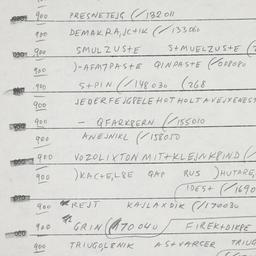 900 PRESNETEJS (/132011
900 DEMAKRAJCTIK (/133060
900 SMULZUSTE STMUELZUSTE (2
900 )-AFM7PASTE QINPASTE (/008080
900 STPIN (/148030 (268
900 JEDERFEJGPELEHOTHOLTAVEJVENEST
900 - QFARKBERN (/155010
900 ANEJNIKL (/158050
900 VOZOLIXTON MITTKLEJNKPIND (/
900 )KACTELSE GAP RUS )HUTARE,
IDEST (/1690
900 REJT KAJLAXDIK (/170030
900 GRIN (/170040 / FIREKTDIKPE
900 TRIUGOLBNIK ASTVARGER TRIUG